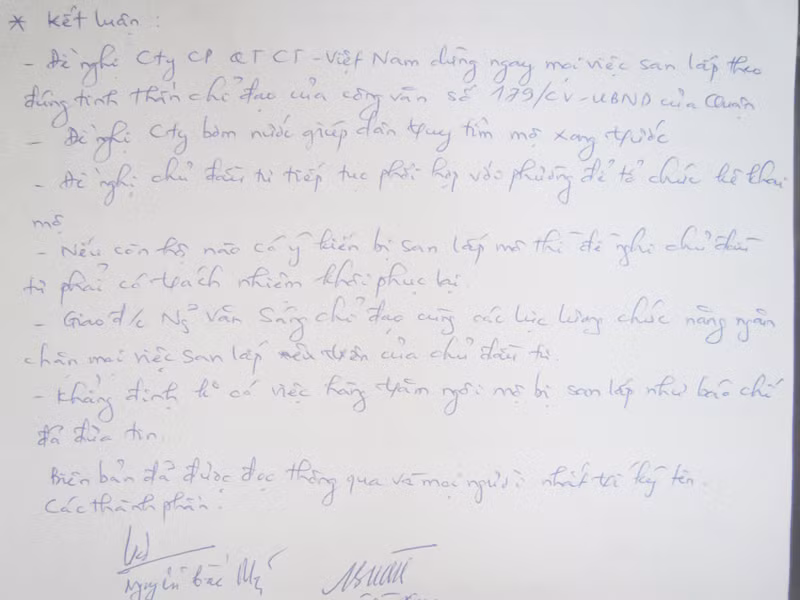 * Kết luận :
- Đề nghị Cty CP QT CT - Việt Nam dừng ngay mọi việc san lấp theo
đúng tinh thần chỉ đạo của công văn số 179/CV-UBND của Quận
- Đề nghị Cty bơm nước giúp dân quy tìm mộ xong trước
- Đề nghị chủ đầu tư tiếp tục phối hợp với phường để tổ chức kê khai
mộ
- Nếu còn hộ nào có ý kiến bị san lấp mộ thì đề nghị chủ đầu
tư phải có trách nhiệm khôi phục lại.
- Giao đ/c Ng~ Văn Sáng chỉ đạo cùng các lực lượng chức năng ngăn
chặn mọi việc san lấp trên của chủ đầu tư.
- Khẳng định k° có việc hàng trăm ngôi mộ bị san lấp như báo chí
đã đưa tin.
Biên bản đã được đọc thông qua và mọi người nhất trí ký tên.
Các thành phần :
Nguyễn Bắc